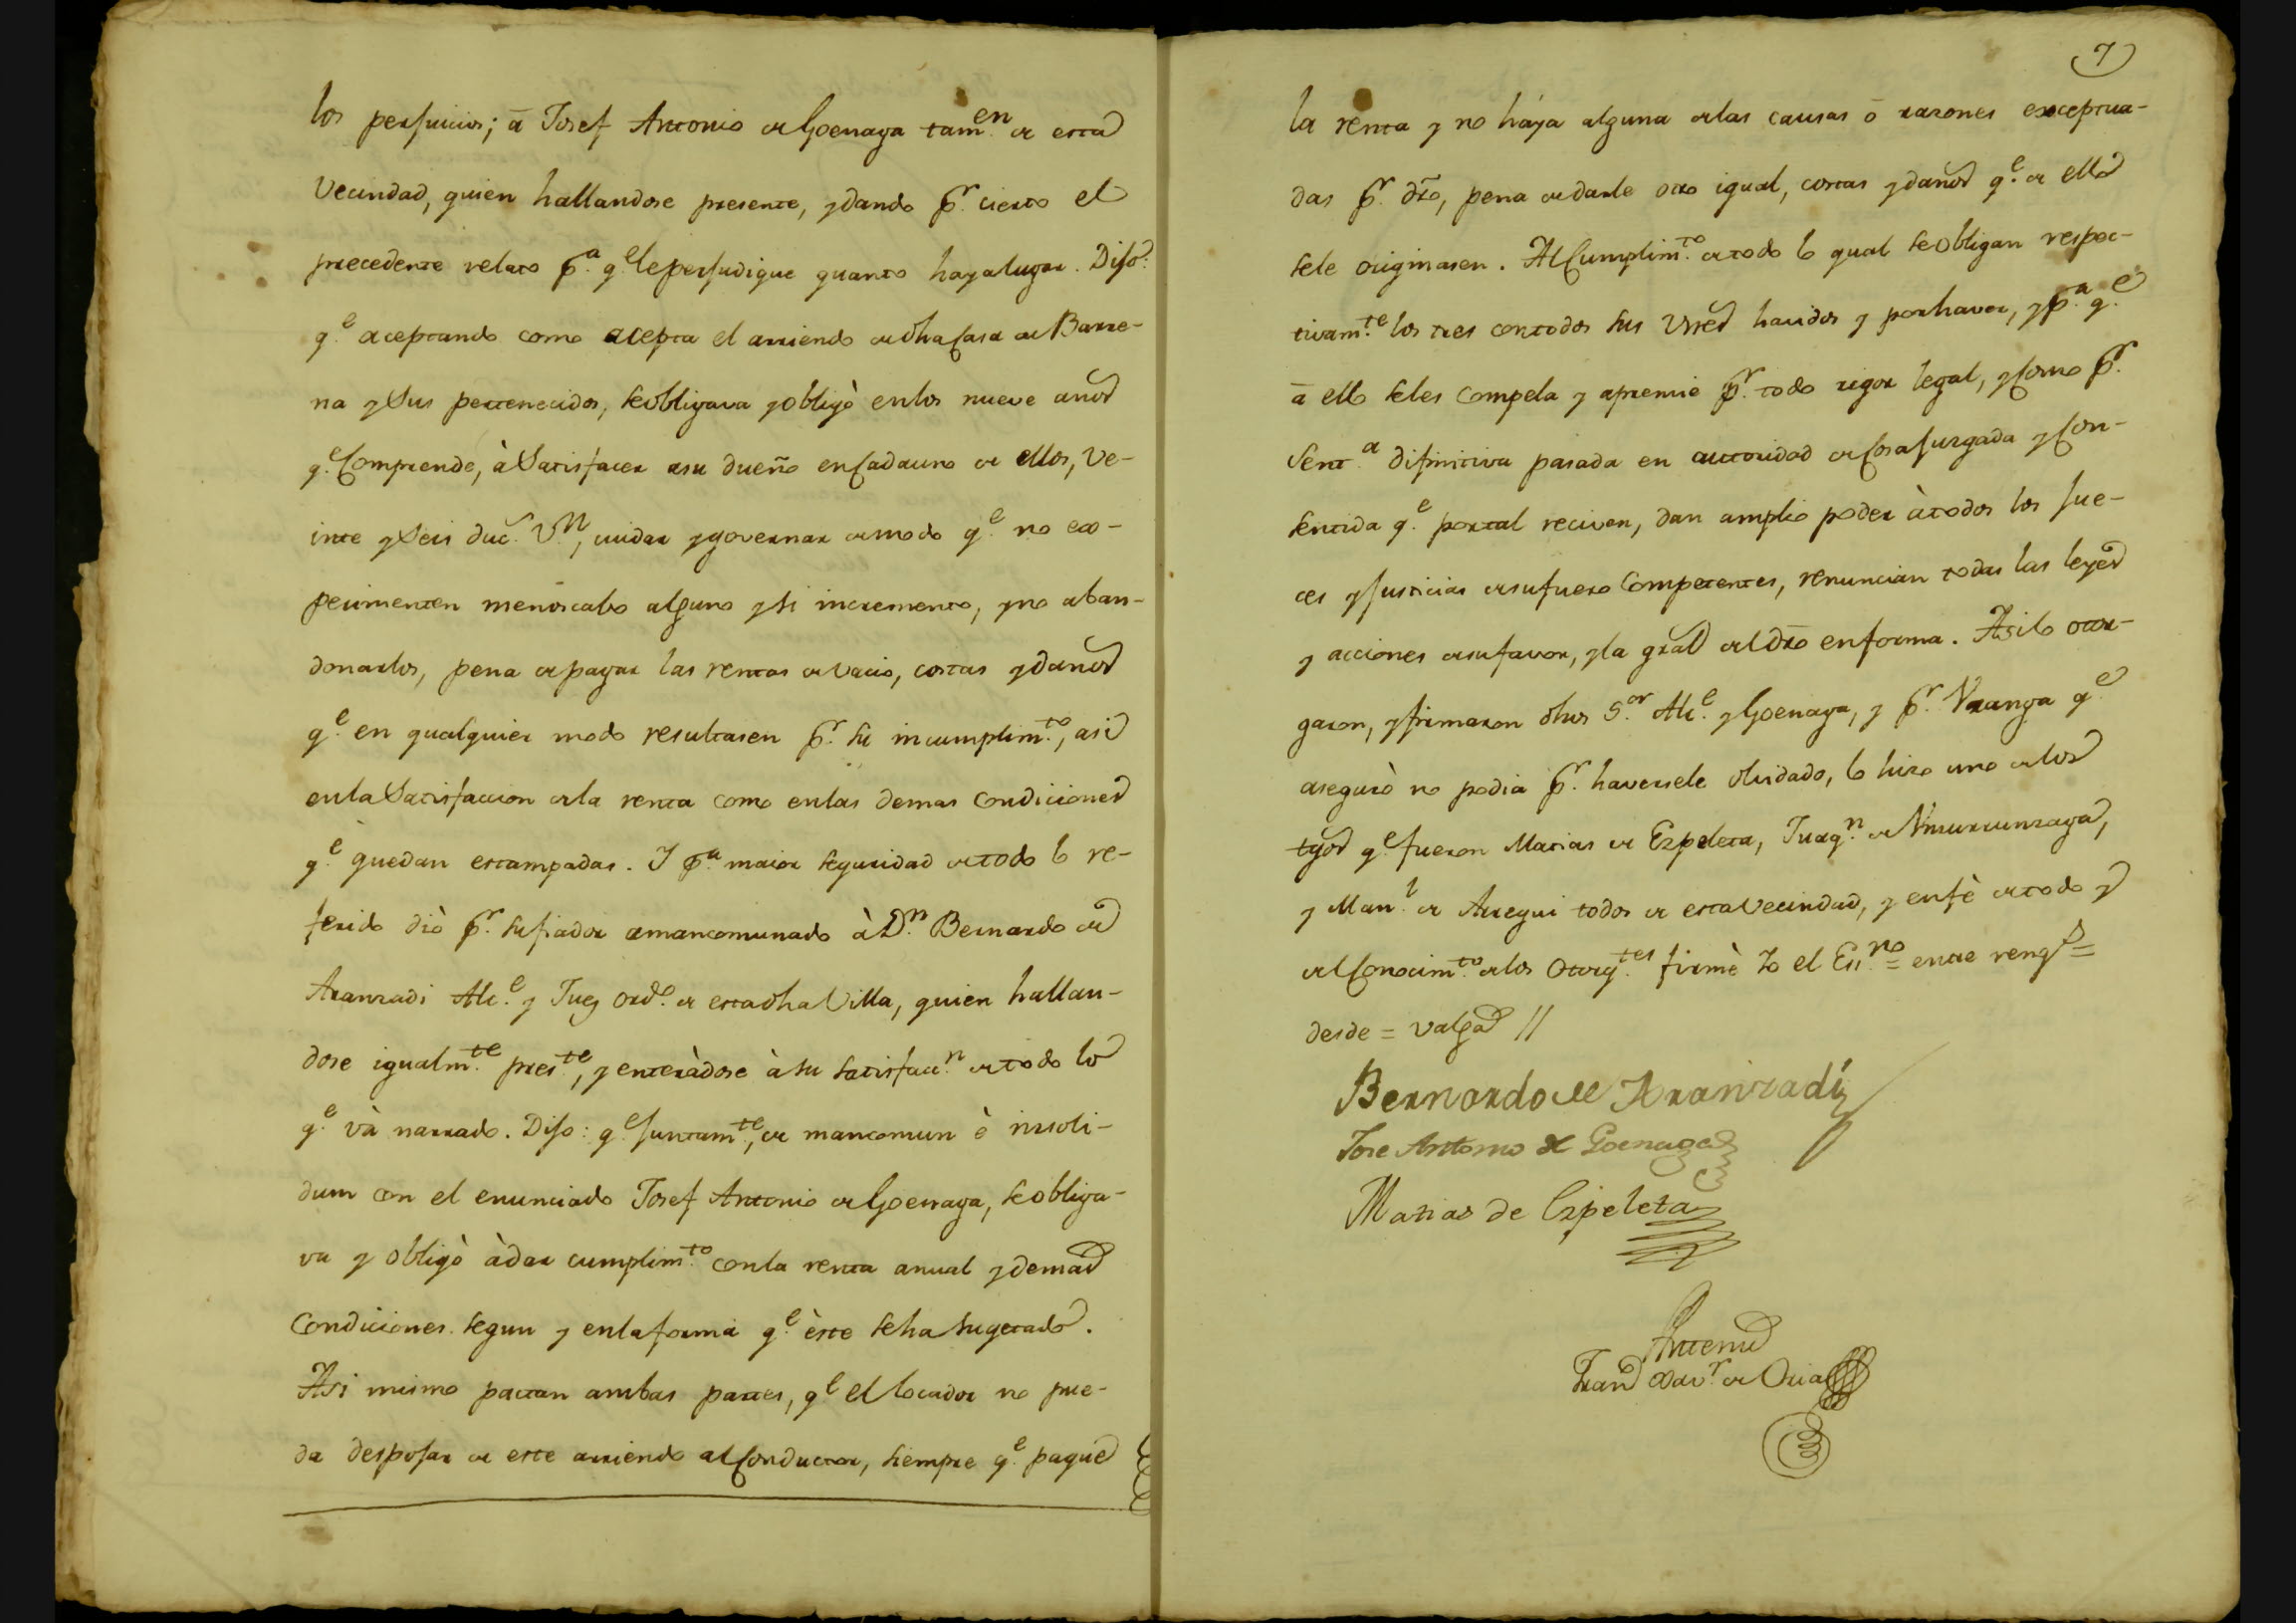 los perjuicios; á Josef Antonio de Goenaga tamen. de esta
Vecindad, quien hallandose presente, y dando pr. cierto el
precedente relato pa. qe. le perjudique quanto haya lugar. Dijo:
qe. aceptando como acepta el arriendo de dha Casa de Barre-
na y sus pertenecidos, se obligava y obligò en los nueve años
qe. Comprende, à Satisfacer asu dueño en Cada uno de ellos, ve-
inte y seis duc.s Vn, cuidar y governar de modo qe. no ex-
perimenten menoscabo alguno y si incremento, y no aban-
donarlos, pena de pagar las rentas de vacio, costas y daños
qe. en qualquier modo resultasen pr. su incumplimto., asi
en la Satisfaccion de la renta como en las demas Condiciones
qe. quedan estampadas. I pa. maior seguridad de todo lo re-
ferido diò pr. su fiador amancomunado à Dn. Bernardo de
Aranzadi Alce. y Juez ordo. de esta dha Villa, quien hallan-
dose igualmte. preste., y enteràdose à su satisfacn. de todo lo
qe. và narrado. Dijo: qe. juntamte., de mancomun è insoli-
dum con el enunciado Josef Antonio de Goenaga, se obliga-
va y obligò à dar cumplimto. con la renta anual y demas
Condiciones segun y en la forma qe. èste seha sugetado.
Asi mismo pactan ambas partes, qe. el locador no pue-
da despojar de este arriendo al Conductor, siempre qe. pague
7
la renta y no háya alguna de las causas ó razones exceptua-
das pr. dro, pena de darle otro igual, costas y daños qe. de ello
sele originasen. Al Cumplimto. de todo lo qual se obligan respec-
tivamte. los tres con todos sus Vnes havidos y por haver, y pa. qe.
á ello seles compela y apremie pr. todo rigor legal, y Como pr.
Senta. difinitiva pasada en autoridad de Cosa juzgada y Con-
sentida qe. por tal reciven, dan amplio poder à todos los jue-
ces y justicias de su fuero Competentes, renuncian todas las leyes
y acciones de su favor, y la gral del dro en forma. Asi lo otor-
garon, y firmaron dhos Sor. Alce. y Goenaga, y pr. Uranga qe.
asegurò no podia pr. haversele olvidado, lo hizo uno de los
tgos qe. fueron Matias de Ezpeleta, Juaqn. de Umurcunzaga,
y Manl. de Arregui todos de esta Vecindad, y en fè de todo y
del Conocimto. de los Otorgtes. firmè Yo el Essno. = entre rengs =
desde = valga //
Bernardo de Aranzadi
Jose Antonio de Goenaga
Matias de Ezpeleta
Antemi
Fran Xavr. de Oria